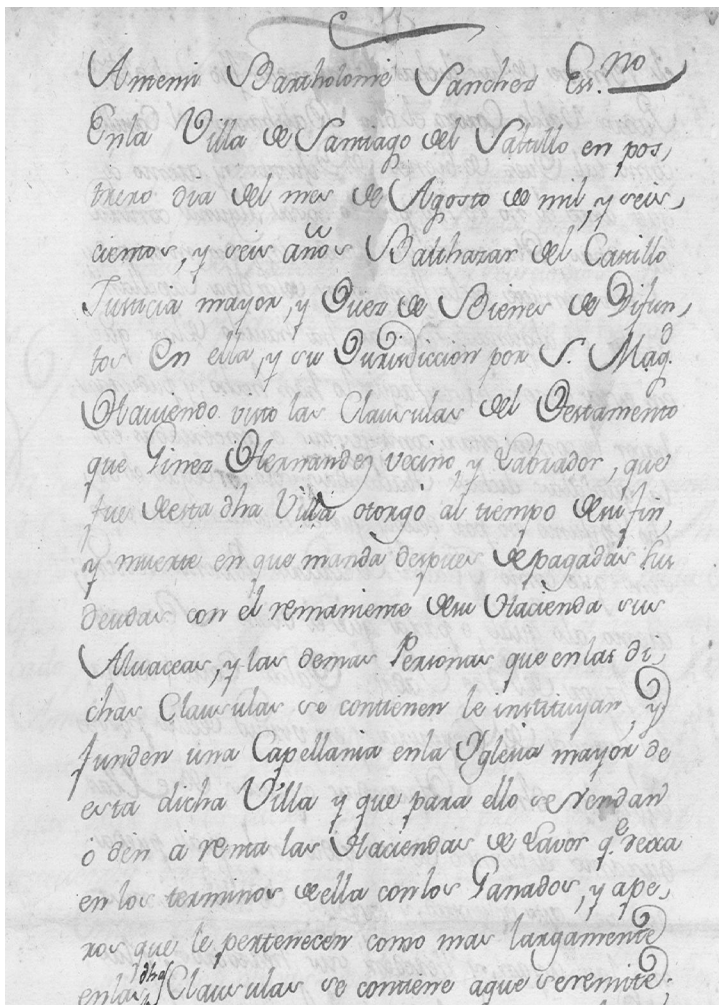 Antemi Bartholome Sanchez Ess.no
Enla Villa de Santiago del Saltillo en pos,
trero dia del mes de Agosto de mil, y seis,
cientos, y seis años Balthazar del Castillo
Justicia mayor, y Juez de Bienes de Difun,
tos En ella, y su Jurisdiccion por S. Mag.d
Haviendo visto las Clausulas del Testamento
que Ginez Hernandez vecino, y Labrador, que
fue desta dha Villa otorgo al tiempo desu fin,
y muerte en que manda despues depagadas sus
deudas con el remaniente desu Hacienda sus
Alvaceas, y las demas Personas que enlas di,
chas Clausulas se contienen le instituyan, y
funden una Capellania enla Yglesia mayor de
esta dicha Villa y que para ello se vendan
ó den á renta las Haciendas de Lavor q.e dexa
enlos terminos de ella conlos Ganados, y ape,
ros que le pertenecen como mas largamente
enlas dhas Clausulas se contiene aque seremite;